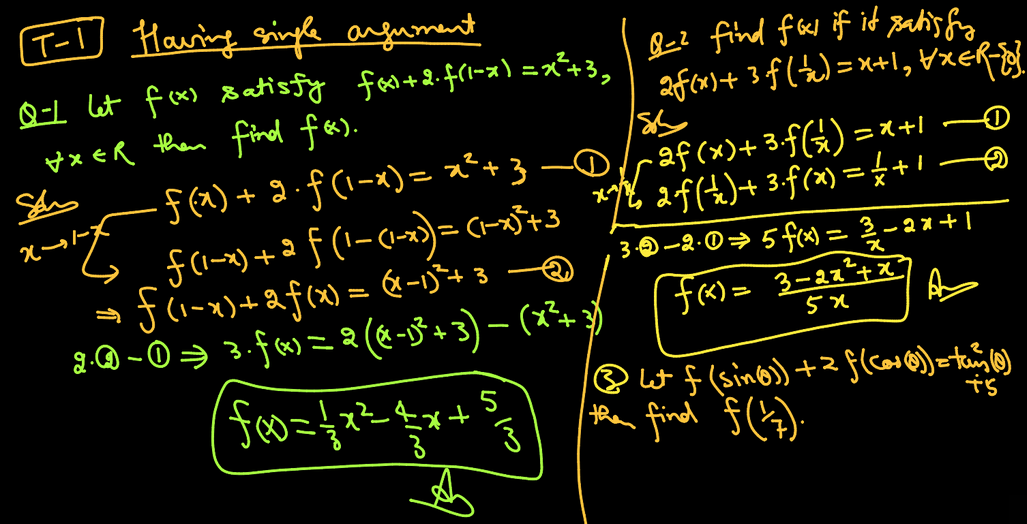 T-1 Having single argument
Q-1 Let f(x) satisfy f(x)+2·f(1-x) = x²+3,
∀x∈R then find f(x).
Soln
f(x) + 2·f(1-x) = x²+3 — ①
x→1-x
f(1-x)+2 f(1-(1-x)) = (1-x)²+3
⇒ f(1-x)+2f(x) = (x-1)²+3 — ②
2·② - ① ⇒ 3·f(x) = 2((x-1)²+3) - (x²+3)
f(x) = 1/3 x² - 4/3 x + 5/3
Q-2 find f(x) if it satisfy
2f(x) + 3·f(1/x) = x+1, ∀x∈R-{0}.
Soln
2f(x) + 3·f(1/x) = x+1 — ①
2f(1/x) + 3·f(x) = 1/x + 1 — ②
3·② - 2·① ⇒ 5f(x) = 3/x - 2x + 1
f(x) = (3-2x²+x)/5x
③ Let f(sin(θ)) + 2 f(cos(θ)) = tan²(θ)
+5
then find f(1/7).